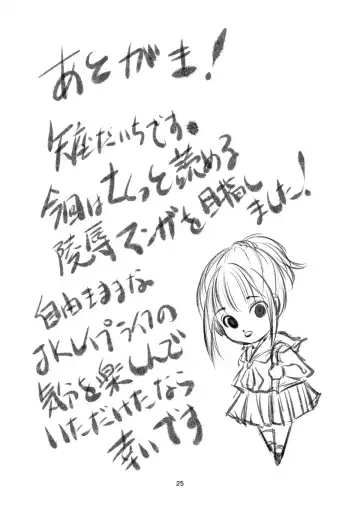 あとがき！
雉だいちです。
今回はもくっと読める
陵辱マンガを目指し
ました！
自由ままな
JKレイプライフの
気分を楽しんで
いただけたなら
幸いです
25